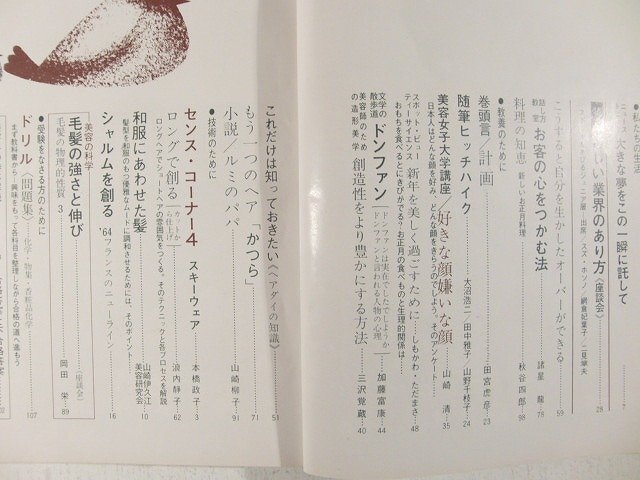 ●私たちの生活
ニュース 大きな夢をこの一瞬に託して
しい業界のあり方〈座談会〉
出席／スズ・ホソノ／網倉妃葉子／二見章夫
28
こうすると自分を生かしたオーバーができる
59
話し方教室 お客の心をつかむ法
諸星 龍 78
料理の知恵 新しいお正月料理
秋谷四郎 98
●教養のために
巻頭言／計画
田宮虎彦 23
随筆ヒッチハイク
大沼浩二／田中雅子／山野千枝子 24
美容女子大学講座／好きな顔嫌いな顔
日本人はどんな顔を好み、どんな顔をきらうのでしょう。そのアンケート
山崎 清 35
スポット・ビューティーサイエンス 新年を美しく過ごすために
しもかわ・ただまさ 48
おもちを食べるとにきびがでる?お正月の食べものと生理的関係は
文学の散歩道 ドンファン
ドンファンは実在したでしょうか
ドンファンと言われる人物の心理
加藤富康 44
美容師のための造形美学 創造性をより豊かにする方法
三沢覚蔵 40
これだけは知っておきたい〈ヘアダイの知識〉
51
もう一つのヘア「かつら」
71
小説／ルミのパパ
山崎柳子 91
●技術のために
センス・コーナー4 スキーウェア
本橋政子 3
ロングで創る カットから仕上げ
浪内静子 62
ロングヘアでショートヘアの雰囲気をつくる。そのテクニックと各プロセスを解説
和服にあわせた髪
山崎伊久江美容研究会 10
髪型を和服のもつ優雅なムードに調和させるためには、そのポイント
シャルムを創る '64フランスのニューライン
16
美容の科学
毛髪の強さと伸び
〈座談会〉
毛髪の物理的性質 3
岡田 栄 89
●受験をなさる方のために
ドリル〈問題集〉 化学・物象・香粧品化学
107
まず教科書から、興味をもって各科目を整理しながら合格の道へ進もう